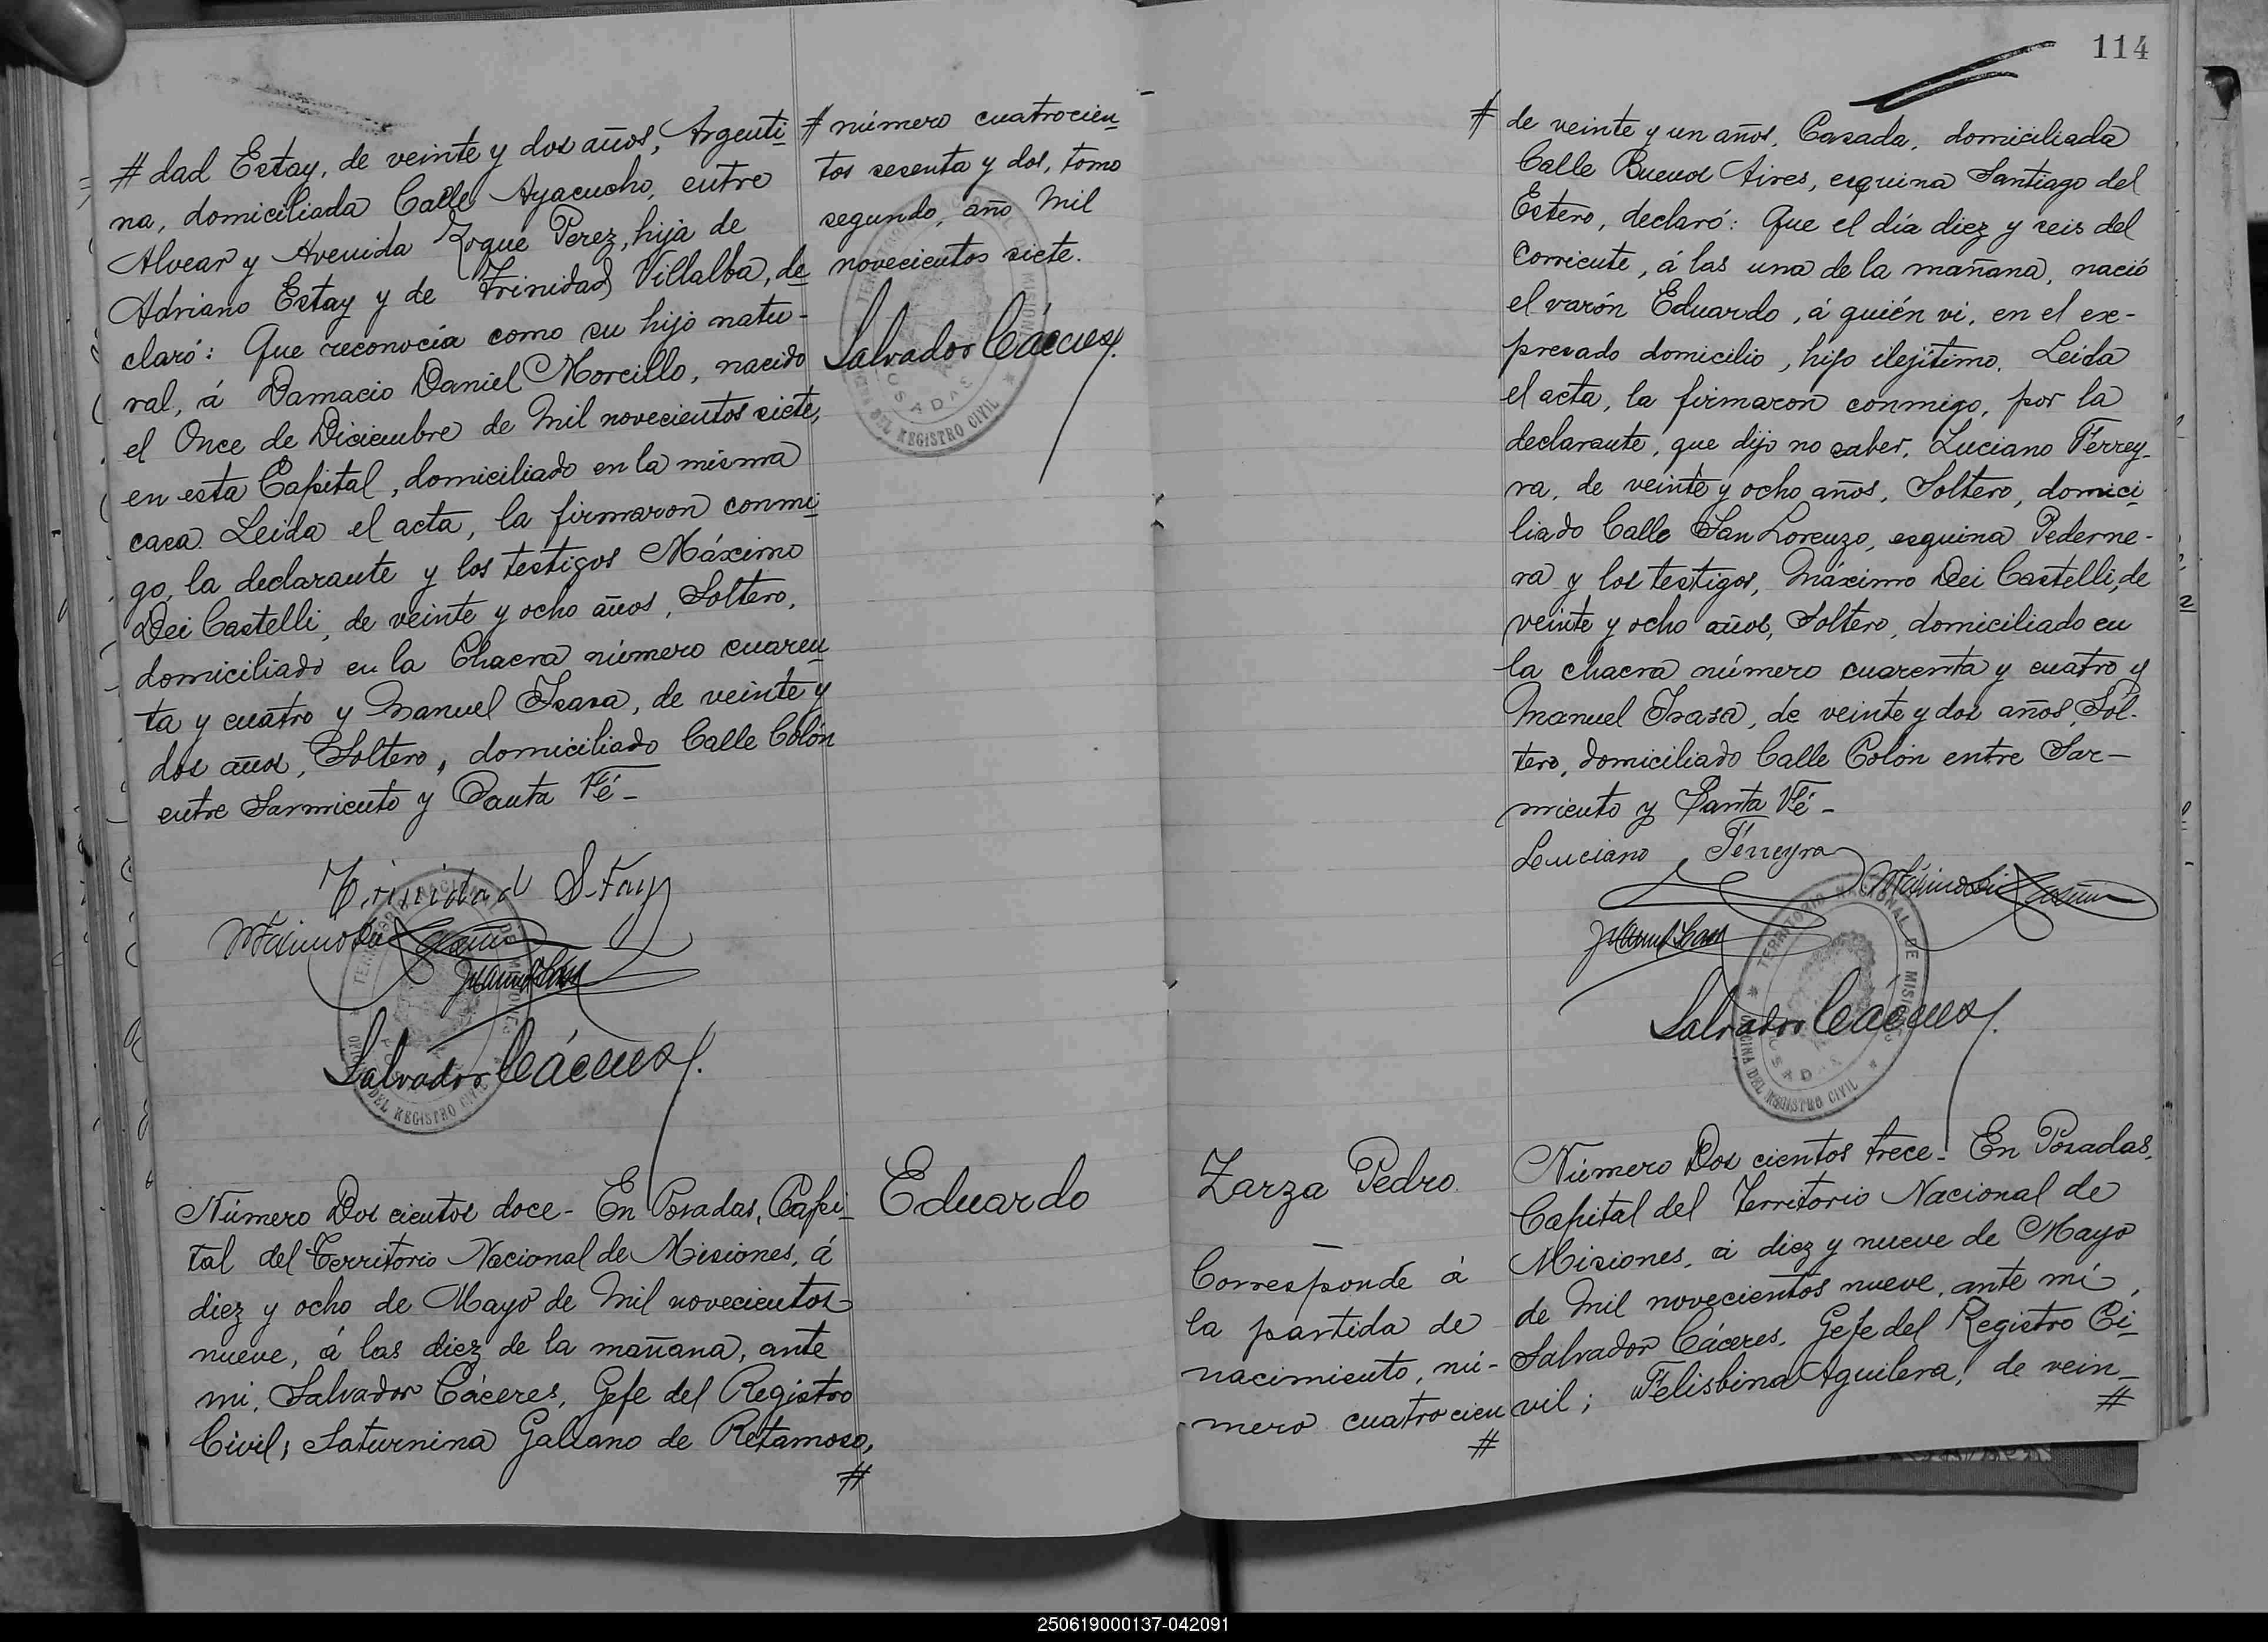 # dad Estay, de veinte y dos años, Argenti-
na, domiciliada Calle Ayacucho, entre
Alvear y Avenida Roque Perez, hija de
Adriano Estay y de Trinidad Villalba, de
claró: Que reconocía como su hijo natu-
ral, á Damacio Daniel Morcillo, nacido
el Once de Diciembre de Mil novecientos siete,
en esta Capital, domiciliado en la misma
casa. Leida el acta, la firmaron conmi
go, la declarante y los testigos Máximo
Dei Castelli, de veinte y ocho años, Soltero,
domiciliado en la Chacra número cuaren
ta y cuatro y Manuel Isasa, de veinte y
dos años, Soltero, domiciliado Calle Colón
entre Sarmiento y Santa Fé-
Trinidad S.Tay
Salvador Cáceres.
TERRITORIO NACIONAL DE MISIONES
OFICINA DEL REGISTRO CIVIL
POSADAS
Número Dos cientos doce- En Posadas, Capi-
tal del Territorio Nacional de Misiones, á
diez y ocho de Mayo de Mil novecientos
nueve, á las diez de la mañana, ante
mi, Salvador Cáceres, Gefe del Registro
Civil; Saturnina Galeano de Retamoso,
#
# número cuatrocien
tos sesenta y dos, tomo
segundo, año Mil
novecientos siete.
Salvador Cáceres.
TERRITORIO NACIONAL DE MISIONES
OFICINA DEL REGISTRO CIVIL
POSADAS
Eduardo
114
# de veinte y un años, Casada, domiciliada
Calle Buenos Aires, esquina Santiago del
Estero, declaró: Que el día diez y seis del
corriente, á las una de la mañana, nació
el varón Eduardo, á quién vi, en el ex-
presado domicilio, hijo ilejítimo. Leida
el acta, la firmaron conmigo, por la
declarante, que dijo no saber, Luciano Ferrey-
ra, de veinte y ocho años, Soltero, domici
liado Calle San Lorenzo, esquina Pederne-
ra y los testigos, Máximo Dei Castelli, de
veinte y ocho años, Soltero, domiciliado en
la chacra número cuarenta y cuatro y
Manuel Isasa, de veinte y dos años, Sol-
tero, domiciliado Calle Colón entre Sar-
miento y Santa Fé-
Luciano Ferreyra
Salvador Cáceres.
TERRITORIO NACIONAL DE MISIONES
OFICINA DEL REGISTRO CIVIL
POSADAS
Zarza Pedro.
Corresponde á
la partida de
nacimiento, nú-
mero cuatrocien
#
Número Dos cientos trece- En Posadas,
Capital del Territorio Nacional de
Misiones, á diez y nueve de Mayo
de Mil novecientos nueve, ante mí,
Salvador Cáceres, Gefe del Registro Ci-
vil; Felisbina Aguilera, de vein-
#
250619000137-042091